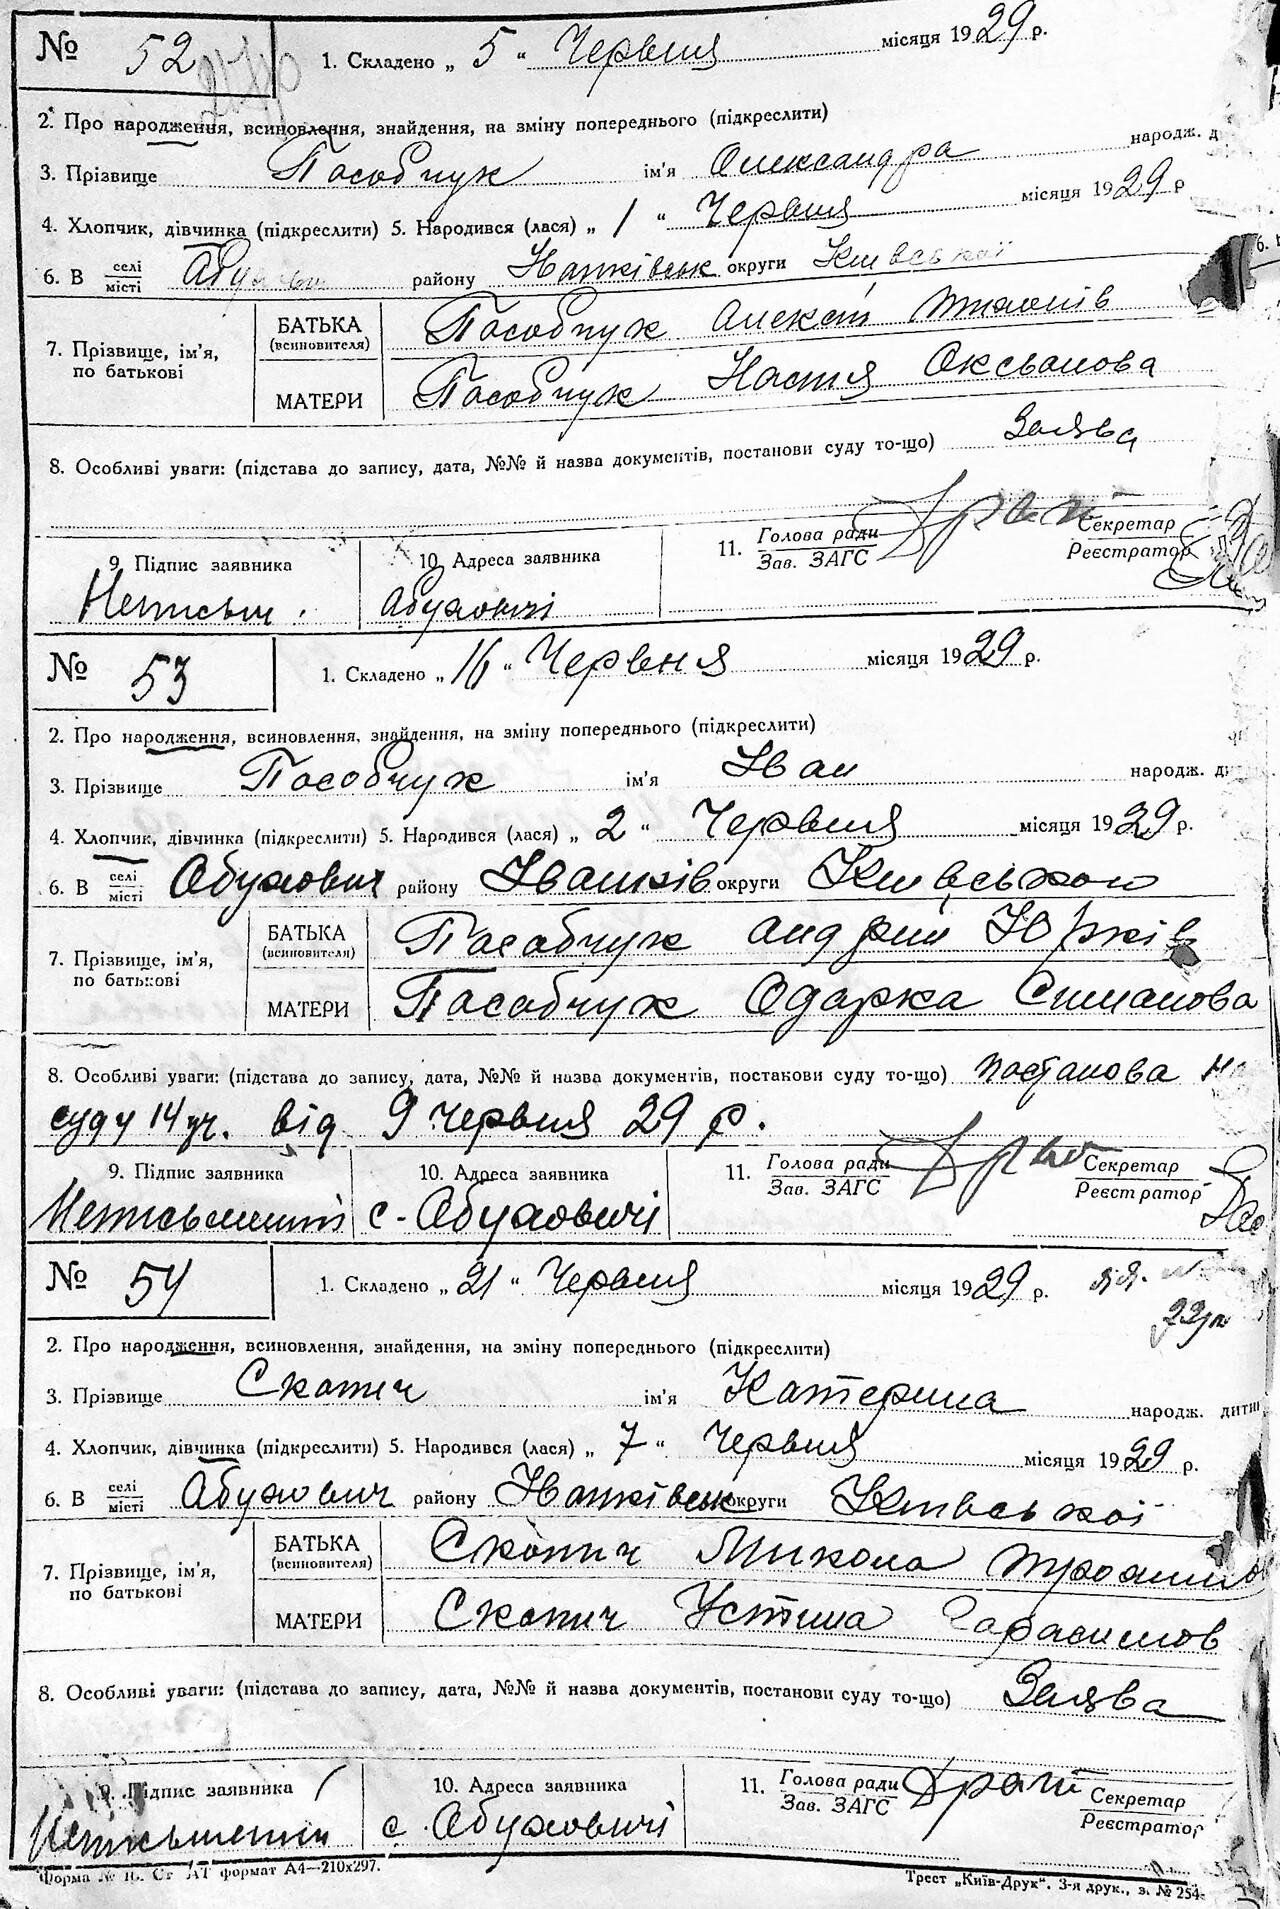 № 52 1. Складено „ 5 “ Червня місяця 1929 р.
2. Про народження, всиновлення, знайдення, на зміну попереднього (підкреслити)
3. Прізвище Пасобчук ім'я Олександра народж. д
4. Хлопчик, дівчинка (підкреслити) 5. Народився (лася) „ 1 “ Червня місяця 1929 р
6. В селі місті району Іванківськ округи Київської
7. Прізвище, ім'я, по батькові
БАТЬКА (всиновителя) Пасобчук
МАТЕРИ Пасобчук Настя
8. Особливі уваги: (підстава до запису, дата, №№ й назва документів, постанови суду то-що) Заява
9. Підпис заявника 10. Адреса заявника 11. Голова ради Зав. ЗАГС Секретар Реєстратор
Неписьм. Абуховичі
№ 53 1. Складено „ 16 “ Червня місяця 1929 р.
2. Про народження, всиновлення, знайдення, на зміну попереднього (підкреслити)
3. Прізвище Пасобчук ім'я Іван народж. ди
4. Хлопчик, дівчинка (підкреслити) 5. Народився (лася) „ 2 “ Червня місяця 1929 р.
6. В селі місті Абухович району Іванків округи Київського
7. Прізвище, ім'я, по батькові
БАТЬКА (всиновителя) Пасобчук Андрій Юрків
МАТЕРИ Пасобчук Одарка Симанова
8. Особливі уваги: (підстава до запису, дата, №№ й назва документів, постакови суду то-що) постанова
суду 14 уч. від 9 червня 29 р.
9. Підпис заявника 10. Адреса заявника 11. Голова ради Зав. ЗАГС Секретар Реєстратор
Неписьменний с. Абуховичі
№ 54 1. Складено „ 21 “ Червня місяця 1929 р.
2. Про народження, всиновлення, знайдення, на зміну попереднього (підкреслити)
3. Прізвище Скопич ім'я Катерина народж. дити
4. Хлопчик, дівчинка (підкреслити) 5. Народився (лася) „ 7 “ Червня місяця 1929 р.
6. В селі місті Абухович району Іванківськ округи Київської
7. Прізвище, ім'я, по батькові
БАТЬКА (всиновителя) Скопич Микола
МАТЕРИ Скопич Устина Гарасимов
8. Особливі уваги: (підстава до запису, дата, №№ й назва документів, постанови суду то-що) Заява
9. Підпис заявника 10. Адреса заявника 11. Голова ради Зав. ЗАГС Секретар Реєстратор
Неписьменний с. Абуховичі
формат А4—210х297. Трест „Київ-Друк“. 3-я друк., з. № 254